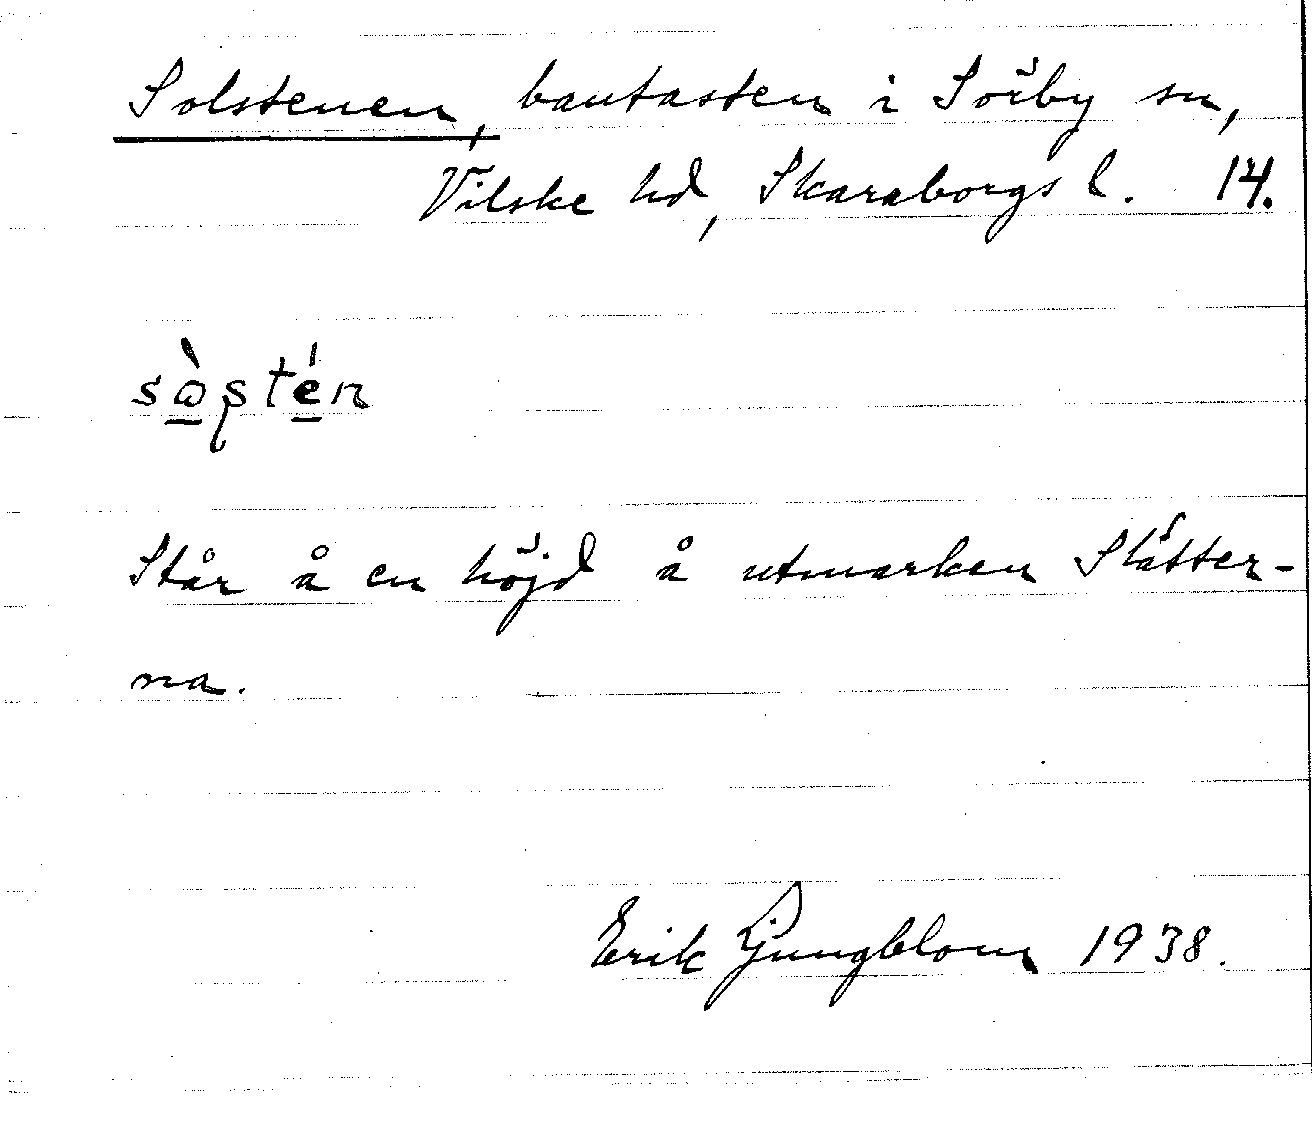 Solstenen, bautasten i Sörby sn,
Vilske hd, Skaraborgs l. 14.
sòstén
Står å en höjd å utmarken Slätter-
na.
Erik Ljungblom 1938.